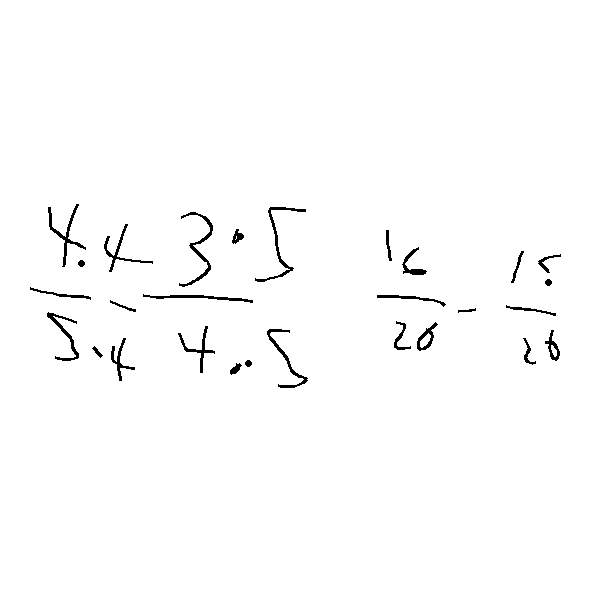 4·4/5·4 - 3·5/4·5 16/20 - 15/20